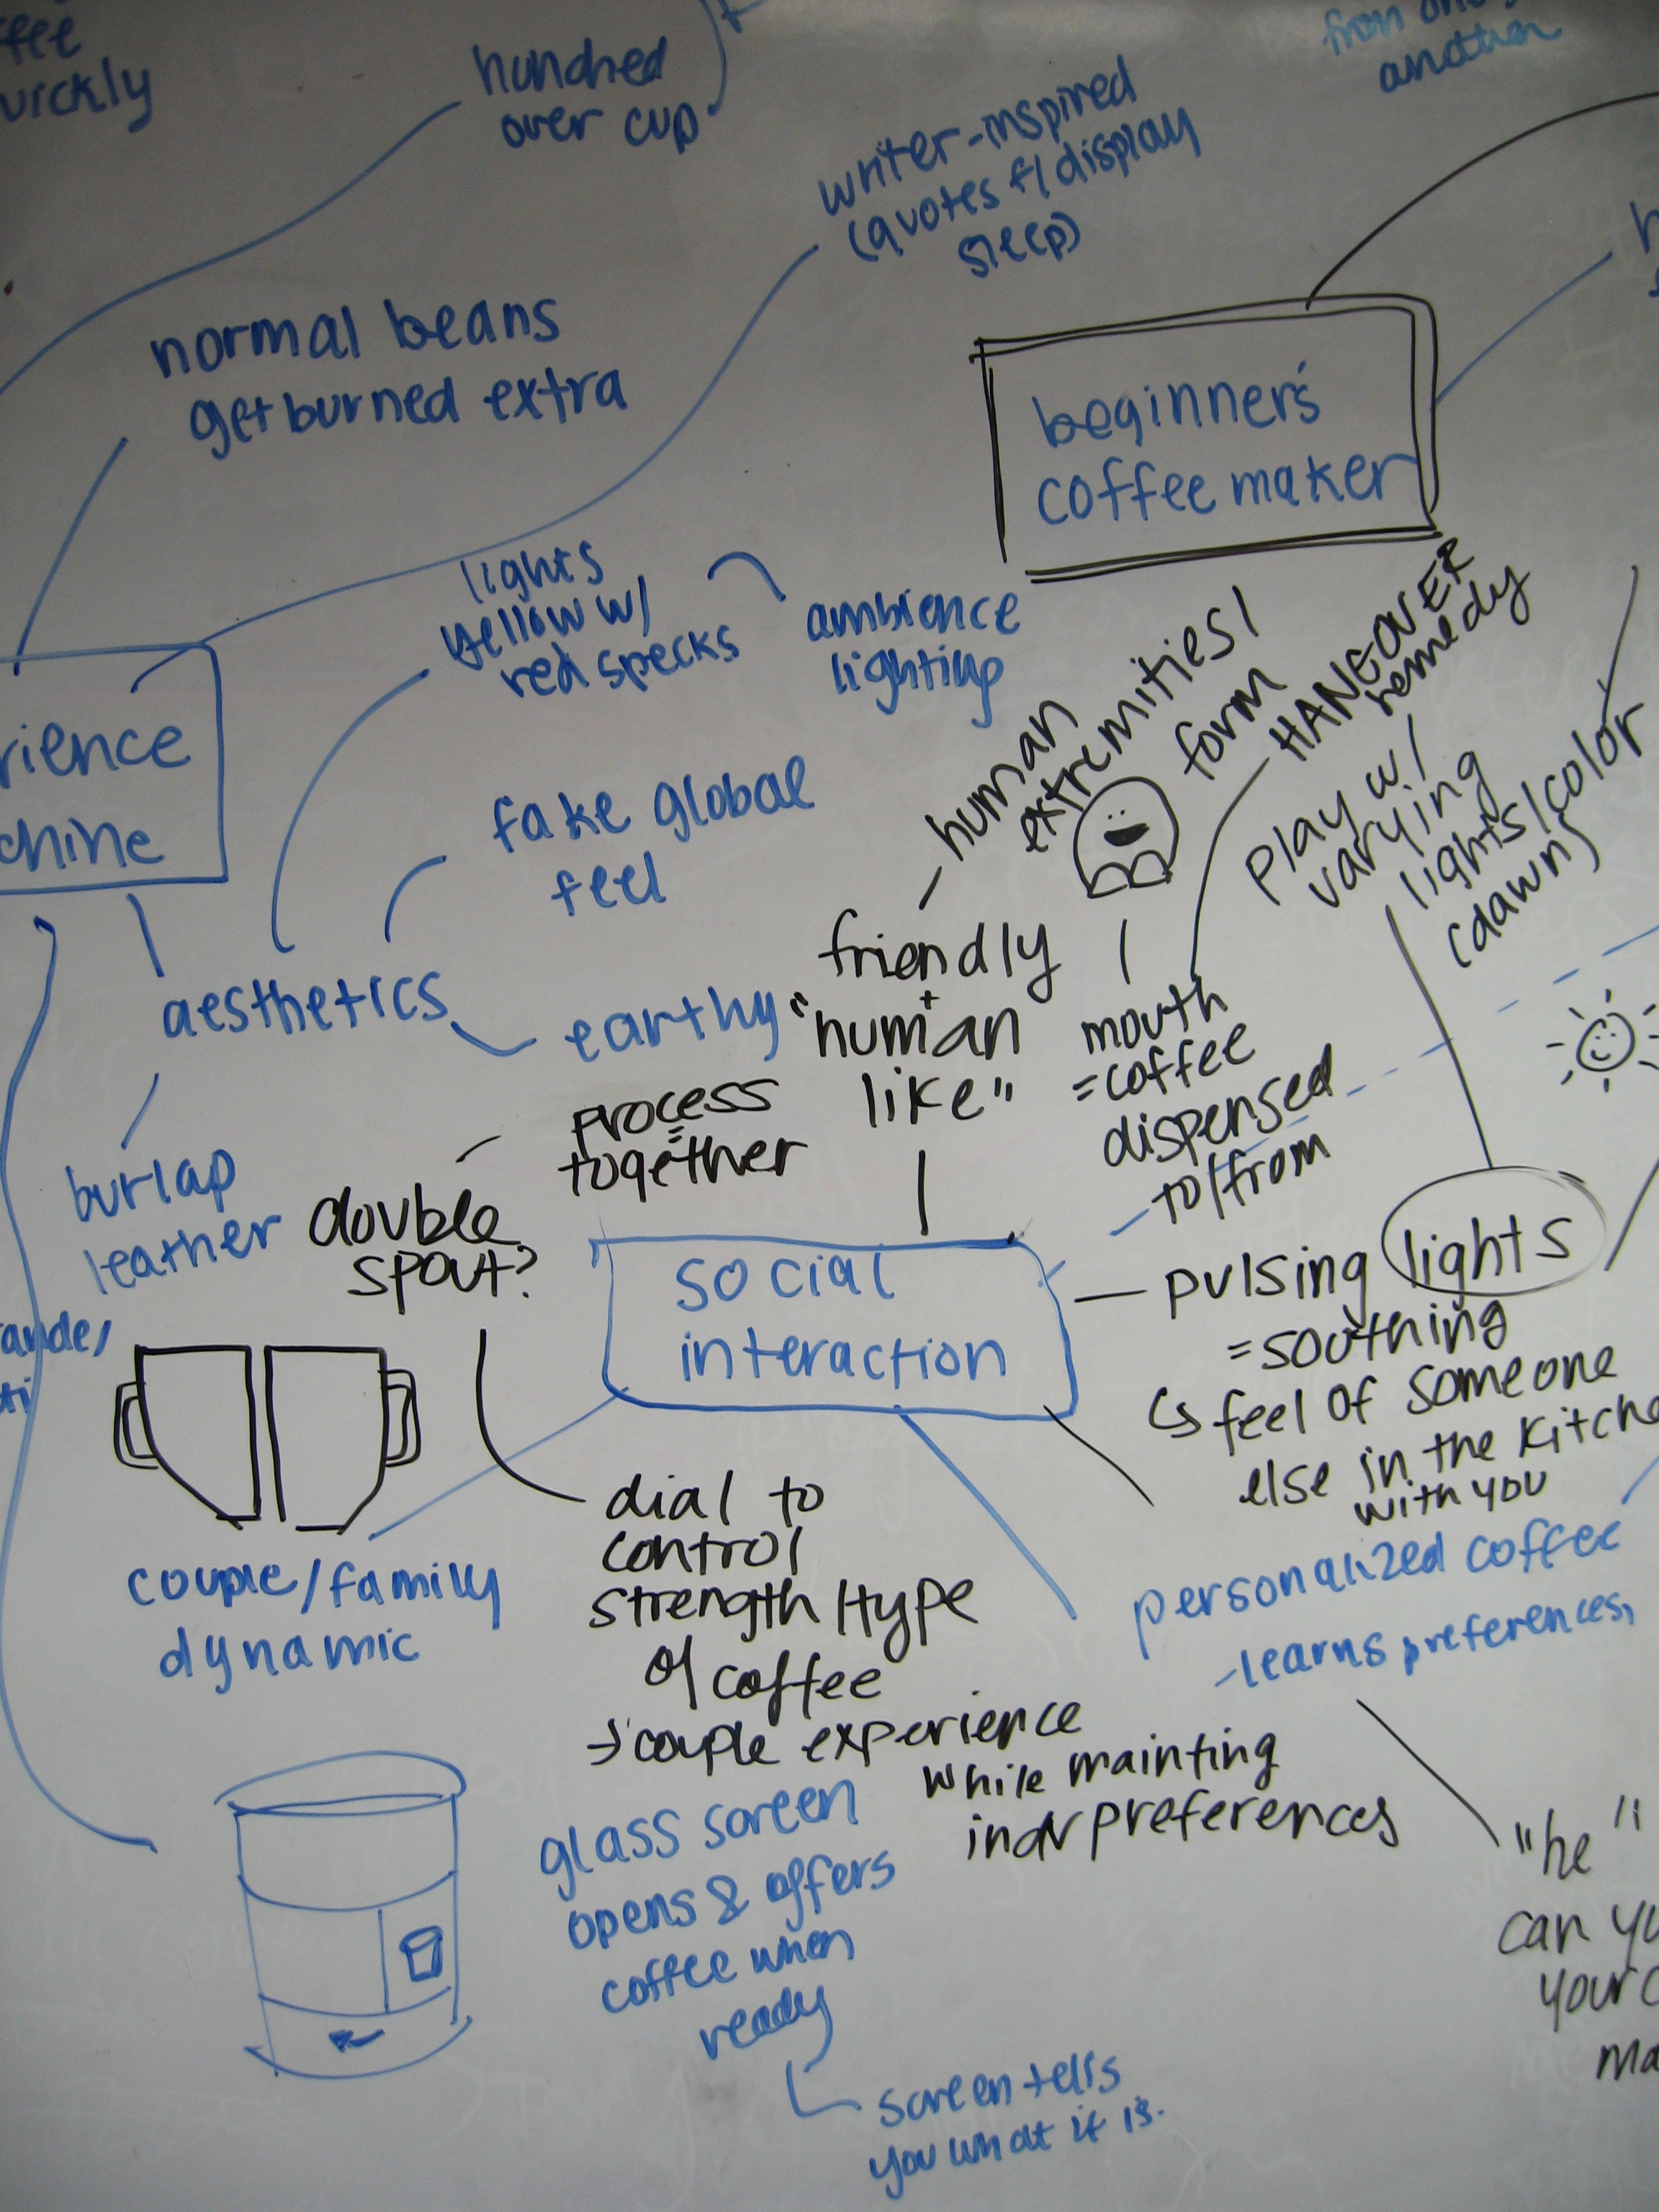 hundred
over cup
from one
another
writer-inspired
(quotes f/display
sleep)
normal beans
get burned extra
beginner's
coffee maker
lights
yellow w/
red specks
ambience
lighting
human
extremities/
form
HANEOVER
remedy
play w/
varying
lights/color
(dawn)
fake global
feel
aesthetics
earthy
burlap
leather
friendly
+
"human
like"
mouth
=coffee
dispensed
to/from
process
=
together
double
spout?
social
interaction
pulsing lights
=soothing
↳ feel of someone
else in the kitche
with you
couple/family
dynamic
dial to
control
strength/type
of coffee
→couple experience
while mainting
indv preferences
personalized coffee
-learns preferences,
"he"
can yo
your c
ma
glass screen
opens & offers
coffee when
ready
screen tells
you what it is.